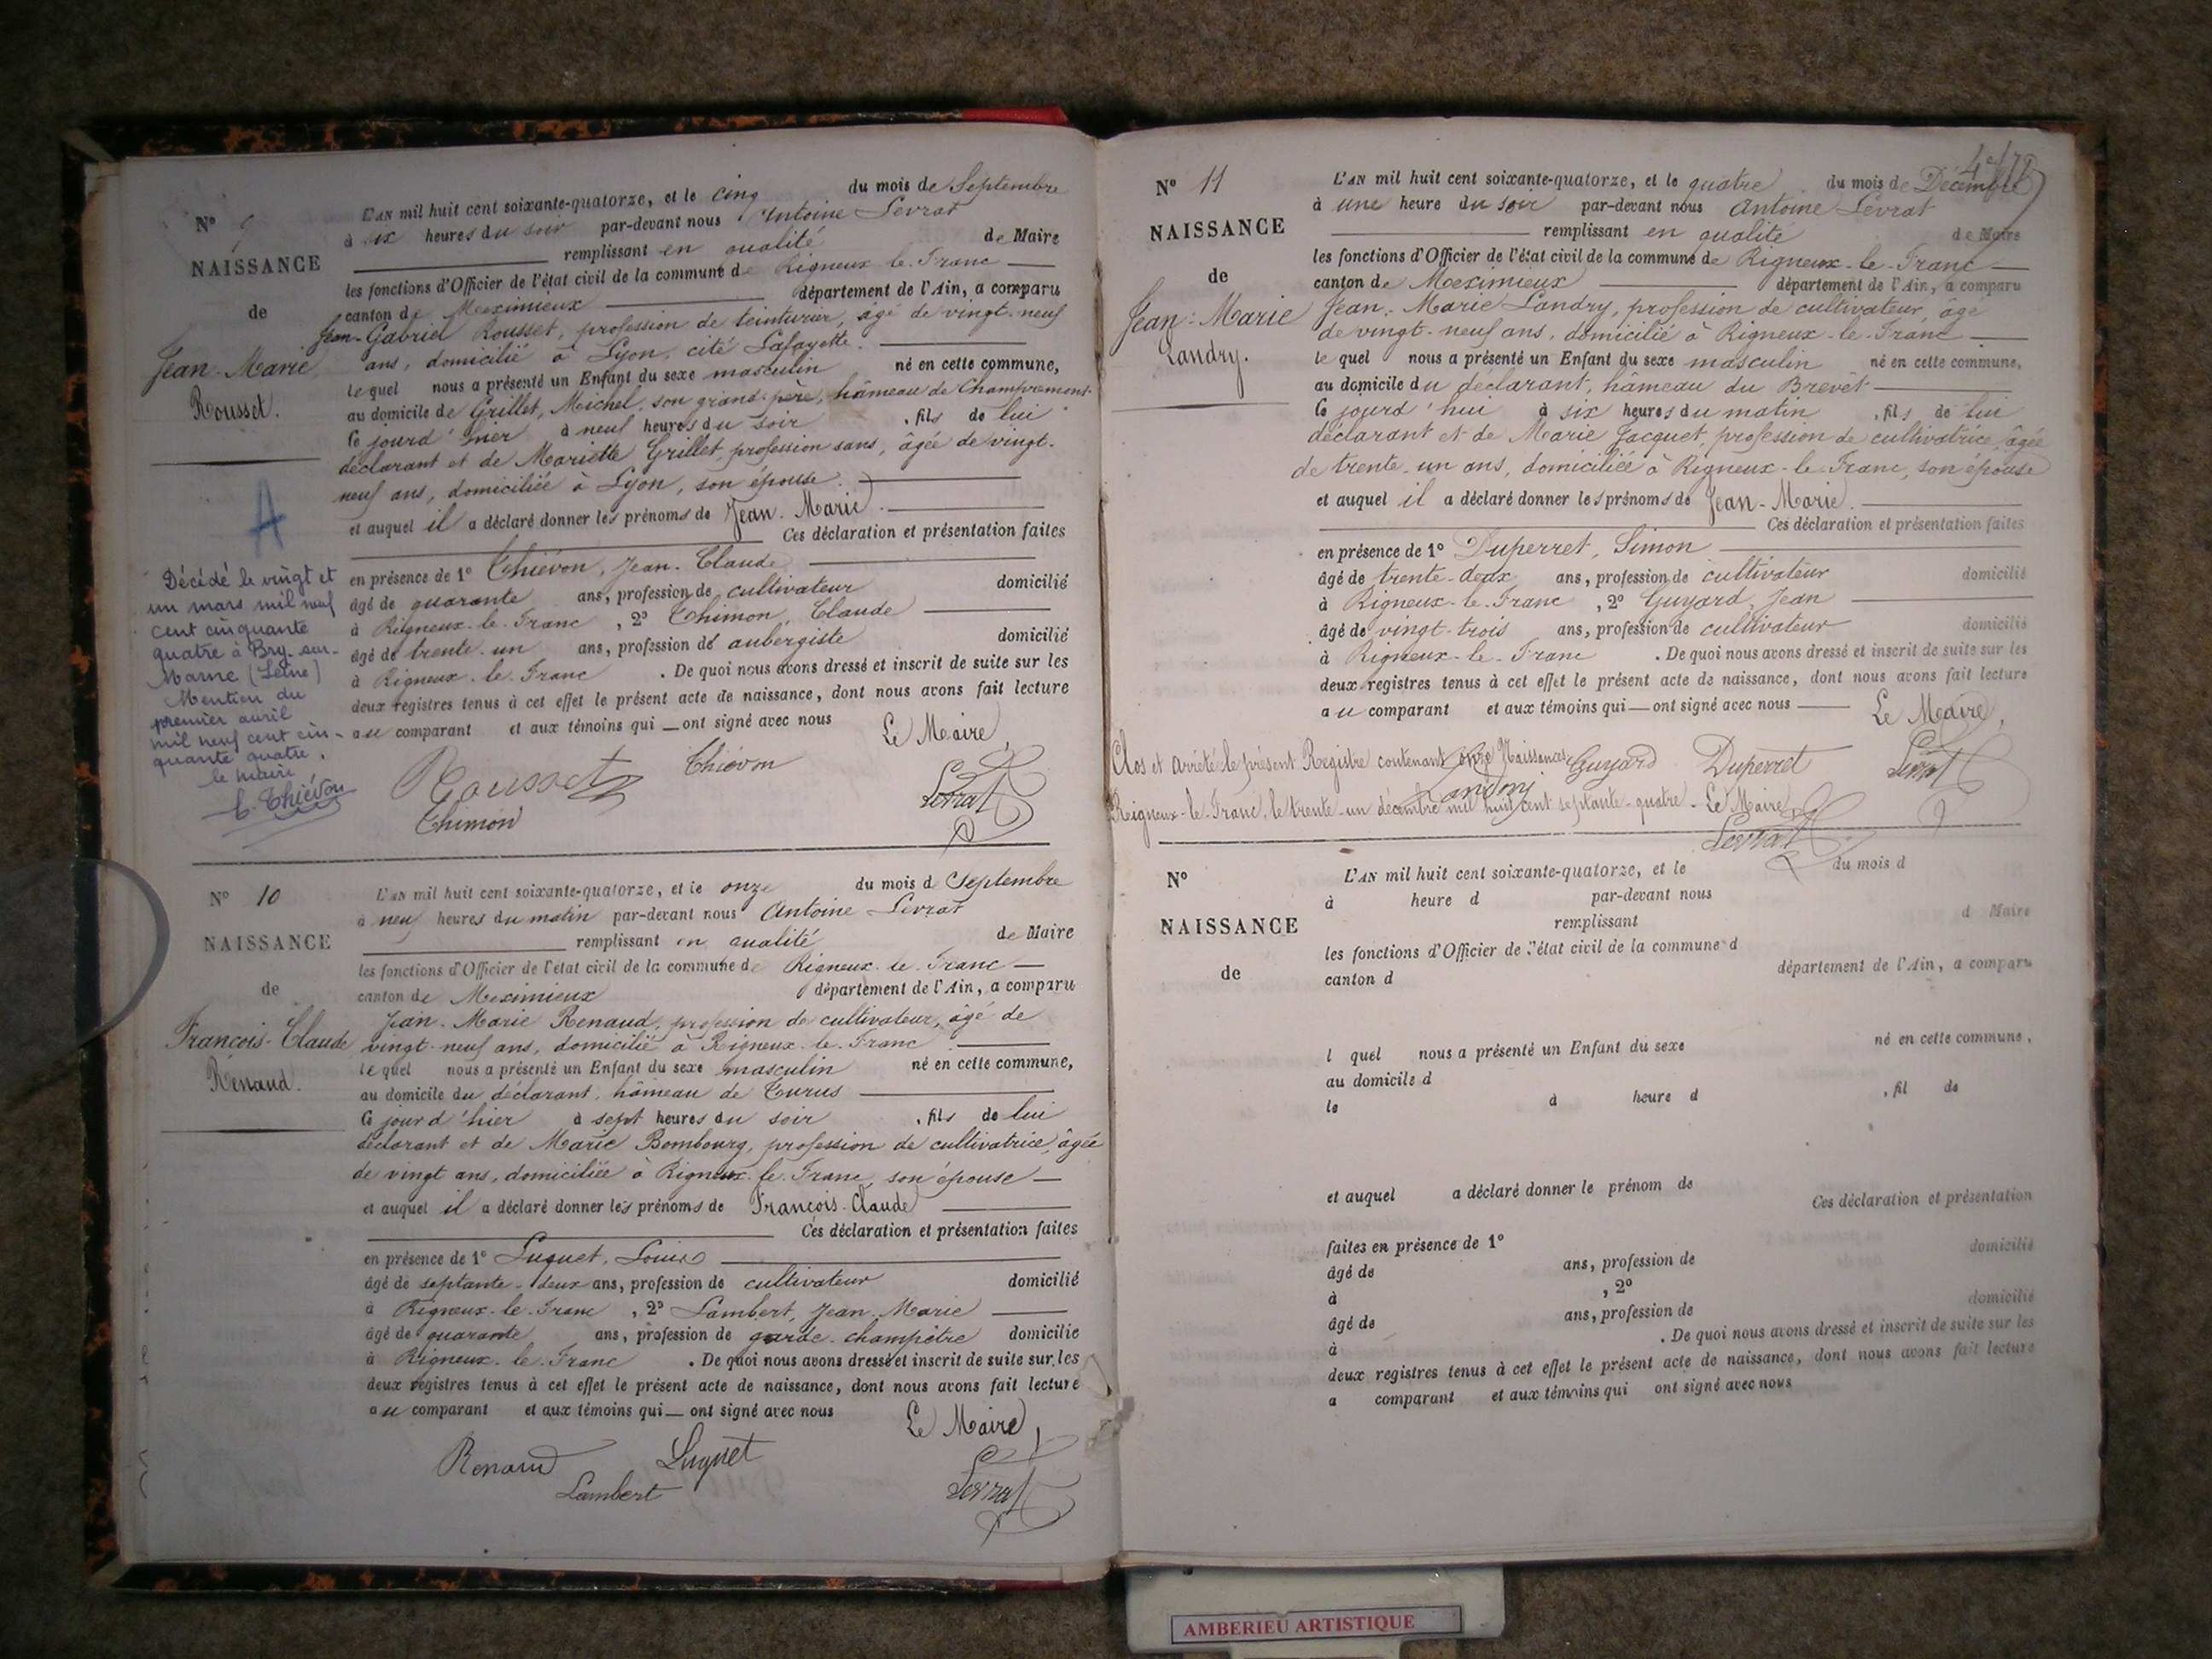 N° 9
NAISSANCE
de
Jean-Marie
Rousset.
A
Décédé le vingt et
un mars mil neuf
cent cinquante
quatre à Bry-sur-
Marne (Seine)
Mention du
premier avril
mil neuf cent cin-
quante quatre.
le maire
C. Thiévon
L'AN mil huit cent soixante-quatorze, et le cinq du mois de Septembre
à six heures du soir par-devant nous Antoine Levrat
remplissant en qualité de Maire
les fonctions d'Officier de l'état civil de la commune de Rigneux-le-Franc
canton de Meximieux département de l'Ain, a comparu
Jean-Gabriel Rousset, profession de teinturier, âgé de vingt-neuf
ans, domicilié à Lyon, cité Lafayette.
lequel nous a présenté un Enfant du sexe masculin né en cette commune,
au domicile de Grillet, Michel, son grand-père, hâmeau de Champremont
ce jourd'hier à neuf heures du soir, fils de lui
déclarant et de Mariette Grillet, profession sans, âgée de vingt-
neuf ans, domiciliée à Lyon, son épouse.
et auquel il a déclaré donner les prénoms de Jean-Marie.
Ces déclaration et présentation faites
en présence de 1° Thiévon, Jean-Claude
âgé de quarante ans, profession de cultivateur domicilié
à Rigneux-le-Franc, 2° Thimon, Claude
âgé de trente-un ans, profession de aubergiste domicilié
à Rigneux-le-Franc. De quoi nous avons dressé et inscrit de suite sur les
deux registres tenus à cet effet le présent acte de naissance, dont nous avons fait lecture
au comparant et aux témoins qui — ont signé avec nous
Le Maire,
Rousset Thiévon
Thimon Levrat
N° 10
NAISSANCE
de
François-Claude
Renaud.
L'AN mil huit cent soixante-quatorze, et le onze du mois de Septembre
à neuf heures du matin par-devant nous Antoine Levrat
remplissant en qualité de Maire
les fonctions d'Officier de l'état civil de la commune de Rigneux-le-Franc
canton de Meximieux département de l'Ain, a comparu
Jean-Marie Renaud, profession de cultivateur, âgé de
vingt-neuf ans, domicilié à Rigneux-le-Franc
lequel nous a présenté un Enfant du sexe masculin né en cette commune,
au domicile du déclarant, hâmeau de Turus
ce jourd'hier à sept heures du soir, fils de lui
déclarant et de Marie Bombourg, profession de cultivatrice, âgée
de vingt ans, domiciliée à Rigneux-le-Franc, son épouse
et auquel il a déclaré donner les prénoms de François-Claude
Ces déclaration et présentation faites
en présence de 1° Luquet, Louis
âgé de septante-deux ans, profession de cultivateur domicilié
à Rigneux-le-Franc, 2° Lambert, Jean-Marie
âgé de quarante ans, profession de garde-champêtre domicilié
à Rigneux-le-Franc. De quoi nous avons dressé et inscrit de suite sur les
deux registres tenus à cet effet le présent acte de naissance, dont nous avons fait lecture
au comparant et aux témoins qui — ont signé avec nous
Le Maire,
Renaud Luquet
Lambert Levrat
N° 11
NAISSANCE
de
Jean-Marie
Landry.
L'AN mil huit cent soixante-quatorze, et le quatre du mois de Décembre
à une heure du soir par-devant nous Antoine Levrat
remplissant en qualité de Maire
les fonctions d'Officier de l'état civil de la commune de Rigneux-le-Franc
canton de Meximieux département de l'Ain, a comparu
Jean-Marie Landry, profession de cultivateur, âgé
de vingt-neuf ans, domicilié à Rigneux-le-Franc
lequel nous a présenté un Enfant du sexe masculin né en cette commune,
au domicile du déclarant, hâmeau du Brevêt
ce jourd'hui à six heures du matin, fils de lui
déclarant et de Marie Jacquet, profession de cultivatrice, âgée
de trente-un ans, domiciliée à Rigneux-le-Franc, son épouse
et auquel il a déclaré donner les prénoms de Jean-Marie.
Ces déclaration et présentation faites
en présence de 1° Duperret, Simon
âgé de trente-deux ans, profession de cultivateur domicilié
à Rigneux-le-Franc, 2° Guyard, Jean
âgé de vingt-trois ans, profession de cultivateur domicilié
à Rigneux-le-Franc. De quoi nous avons dressé et inscrit de suite sur les
deux registres tenus à cet effet le présent acte de naissance, dont nous avons fait lecture
au comparant et aux témoins qui — ont signé avec nous
Le Maire,
Clos et arrêté le présent Registre contenant onze Naissances Guyard Duperret Levrat
Landry
Reigneux-le-Franc, le trente-un décembre mil huit cent septante-quatre. Le Maire,
Levrat
N°
NAISSANCE
de
L'AN mil huit cent soixante-quatorze, et le du mois d
à heure d par-devant nous
remplissant d Maire
les fonctions d'Officier de l'état civil de la commune d
canton d département de l'Ain, a comparu
l quel nous a présenté un Enfant du sexe né en cette commune,
au domicile d
le à heure d , fil de
et auquel a déclaré donner le prénom de
Ces déclaration et présentation
faites en présence de 1°
âgé de ans, profession de domicilié
à , 2°
âgé de ans, profession de domicilié
à . De quoi nous avons dressé et inscrit de suite sur les
deux registres tenus à cet effet le présent acte de naissance, dont nous avons fait lecture
a comparant et aux témoins qui ont signé avec nous
AMBERIEU ARTISTIQUE